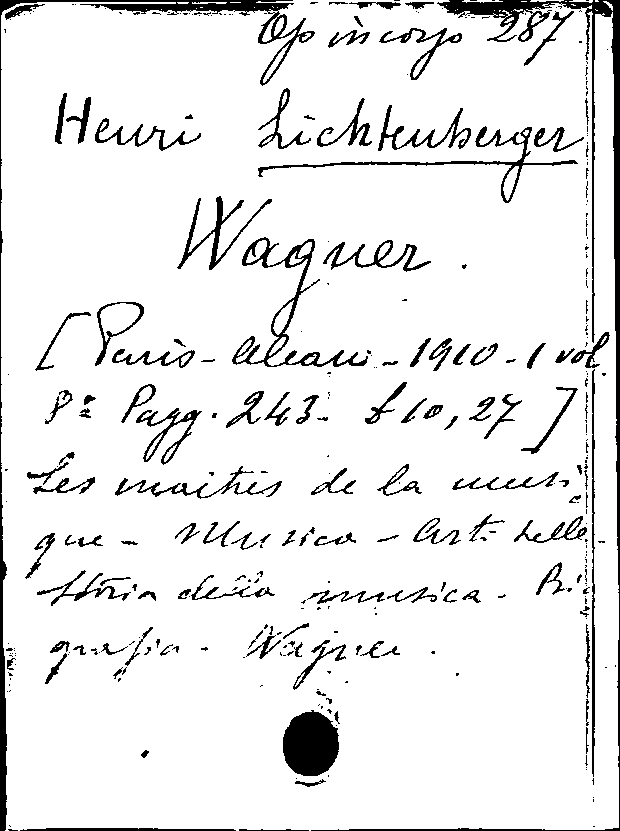 Op in corso 287
Henri Lichtenberger
Wagner.
[Paris - Alcan - 1910 - 1 vol.
8º Pagg. 243 - £ 10,27]
Les maîtres de la musi
que - Musica - Arti belle -
Storia della musica - Bi
grafia - Wagner.